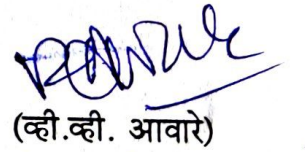 (व्ही.व्ही. आवारे)